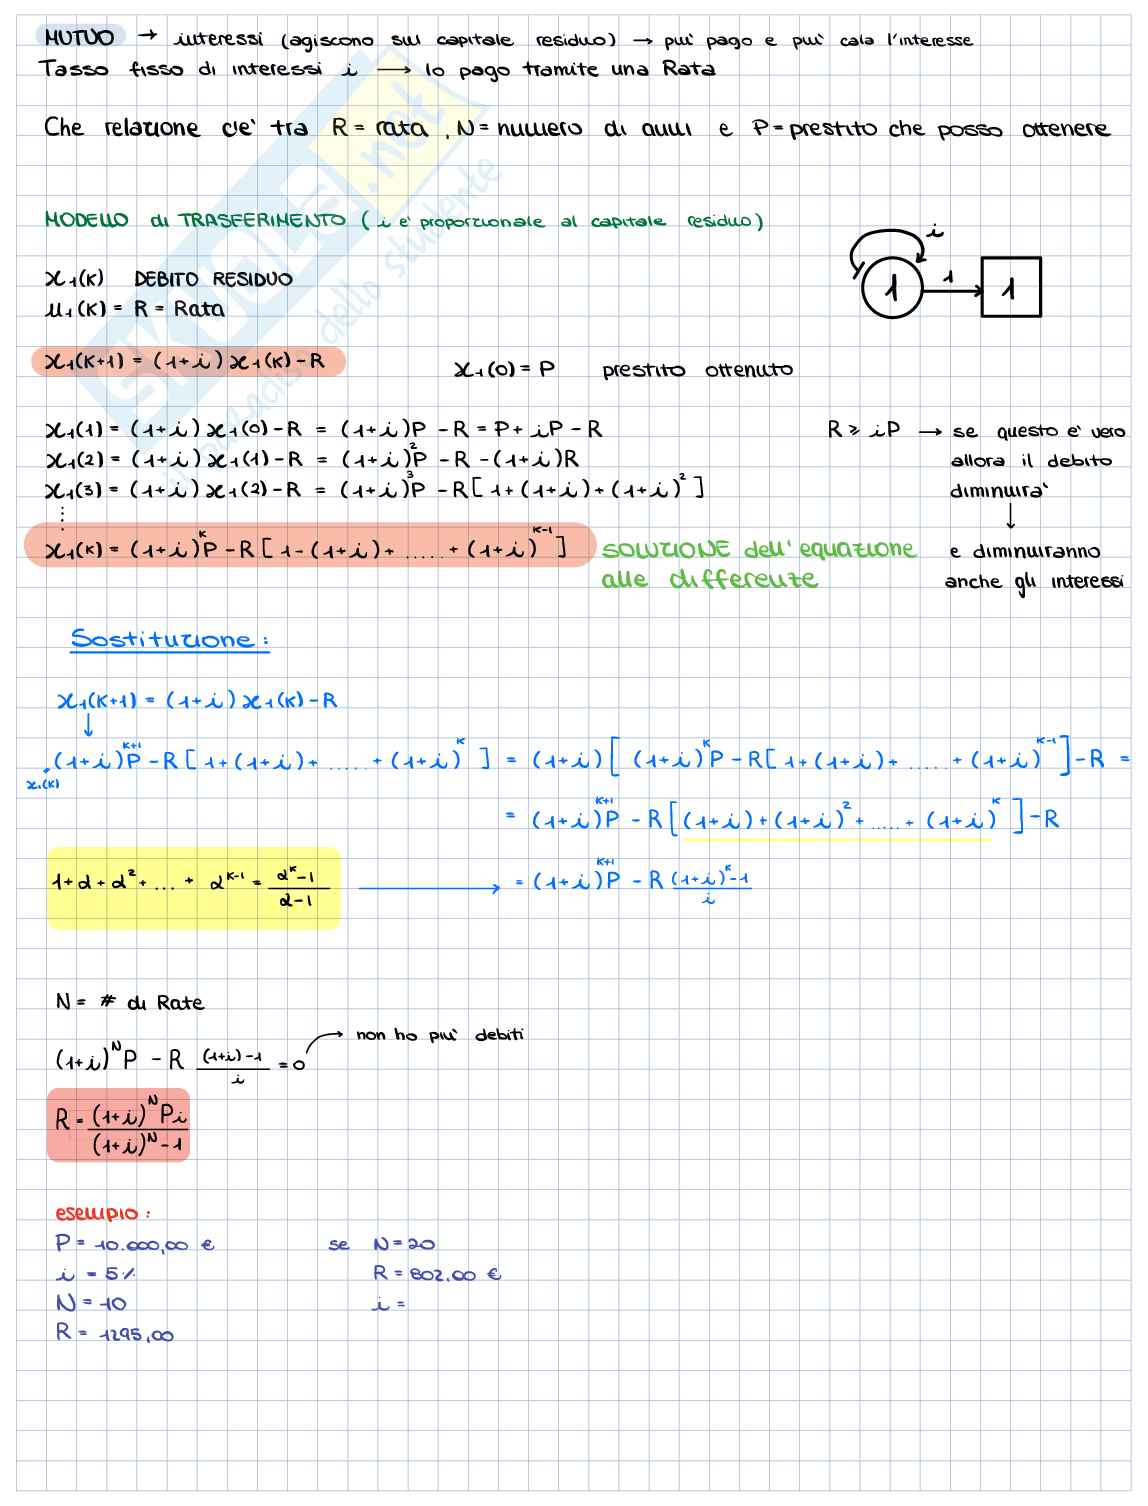 MUTUO → interessi (agiscono sul capitale residuo) → piu' pago e piu' cala l'interesse
Tasso fisso di interessi i → lo pago tramite una Rata
Che relazione c'e' tra R = rata, N = numero di anni e P = prestito che posso ottenere
MODELLO di TRASFERIMENTO (i e' proporzionale al capitale residuo)
i
1 → 1 1
x₁(K) DEBITO RESIDUO
u₁(K) = R = Rata
x₁(K+1) = (1+i) x₁(K) - R
x₁(0) = P prestito ottenuto
x₁(1) = (1+i) x₁(0) - R = (1+i)P - R = P + iP - R
x₁(2) = (1+i) x₁(1) - R = (1+i)²P - R - (1+i)R
x₁(3) = (1+i) x₁(2) - R = (1+i)³P - R[1+(1+i)+(1+i)²]
⋮
x₁(K) = (1+i)ᴷP - R[1-(1+i)+.....+(1+i)ᴷ⁻¹]
SOLUZIONE dell'equazione
alle differenze
R ≥ iP → se questo e' vero
allora il debito
diminuira'
↓
e diminuiranno
anche gli interessi
Sostituzione:
x₁(K+1) = (1+i) x₁(K) - R
↓
(1+i)ᴷ⁺¹P - R[1+(1+i)+.....+(1+i)ᴷ] = (1+i)[(1+i)ᴷP - R[1+(1+i)+.....+(1+i)ᴷ⁻¹] - R =
x₁(K)
= (1+i)ᴷ⁺¹P - R[(1+i)+(1+i)²+.....+(1+i)ᴷ] - R
1+α+α²+...+αᴷ⁻¹ = (αᴷ-1)/(α-1) → = (1+i)ᴷ⁺¹P - R ((1+i)ᴷ-1)/i
N = # di Rate
(1+i)ᴺP - R ((1+i)-1)/i = 0 → non ho piu' debiti
R = (1+i)ᴺPi/((1+i)ᴺ-1)
esempio:
P = 10.000,00 €
i = 5%
N = 10
R = 1295,00
se N = 20
R = 802,00 €
i =
SKUOLA.net
dello studente